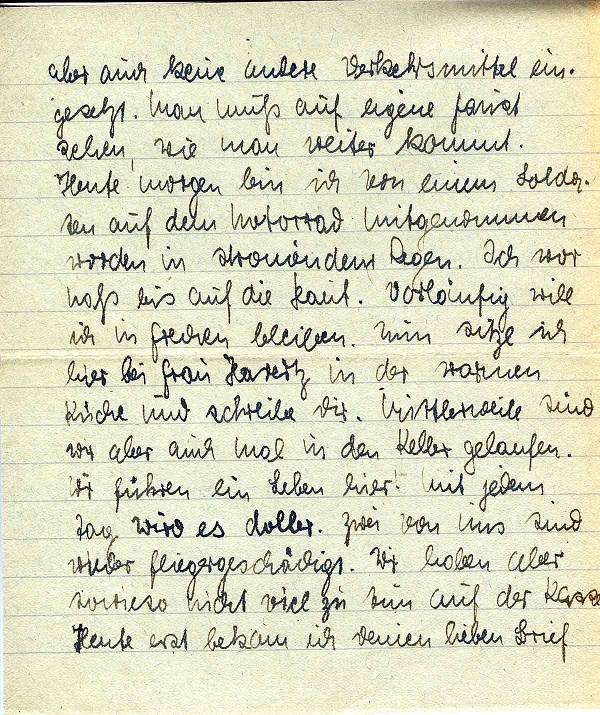 aber auch keine andere Verkehrsmittel ein-
gesetzt. Man muß auf eigene Faust
sehen, wie man weiter kommt.
Heute morgen bin ich von einem Solda-
ten auf dem Motorrad mitgenommen
worden in strömendem Regen. Ich war
naß bis auf die Haut. Vorläufig will
ich in Frechen bleiben. Nun sitze ich
hier bei Frau in der warmen
Küche und schreibe Dir. Mittlerweile sind
wir aber auch mal in den Keller gelaufen.
Wir führen ein Leben hier! Mit jedem
Tag wird es doller. Zwei von uns sind
wieder fliegergeschädigt. Wir haben aber
sowieso nicht viel zu tun auf der Kasse
Heute erst bekam ich deinen lieben Brief